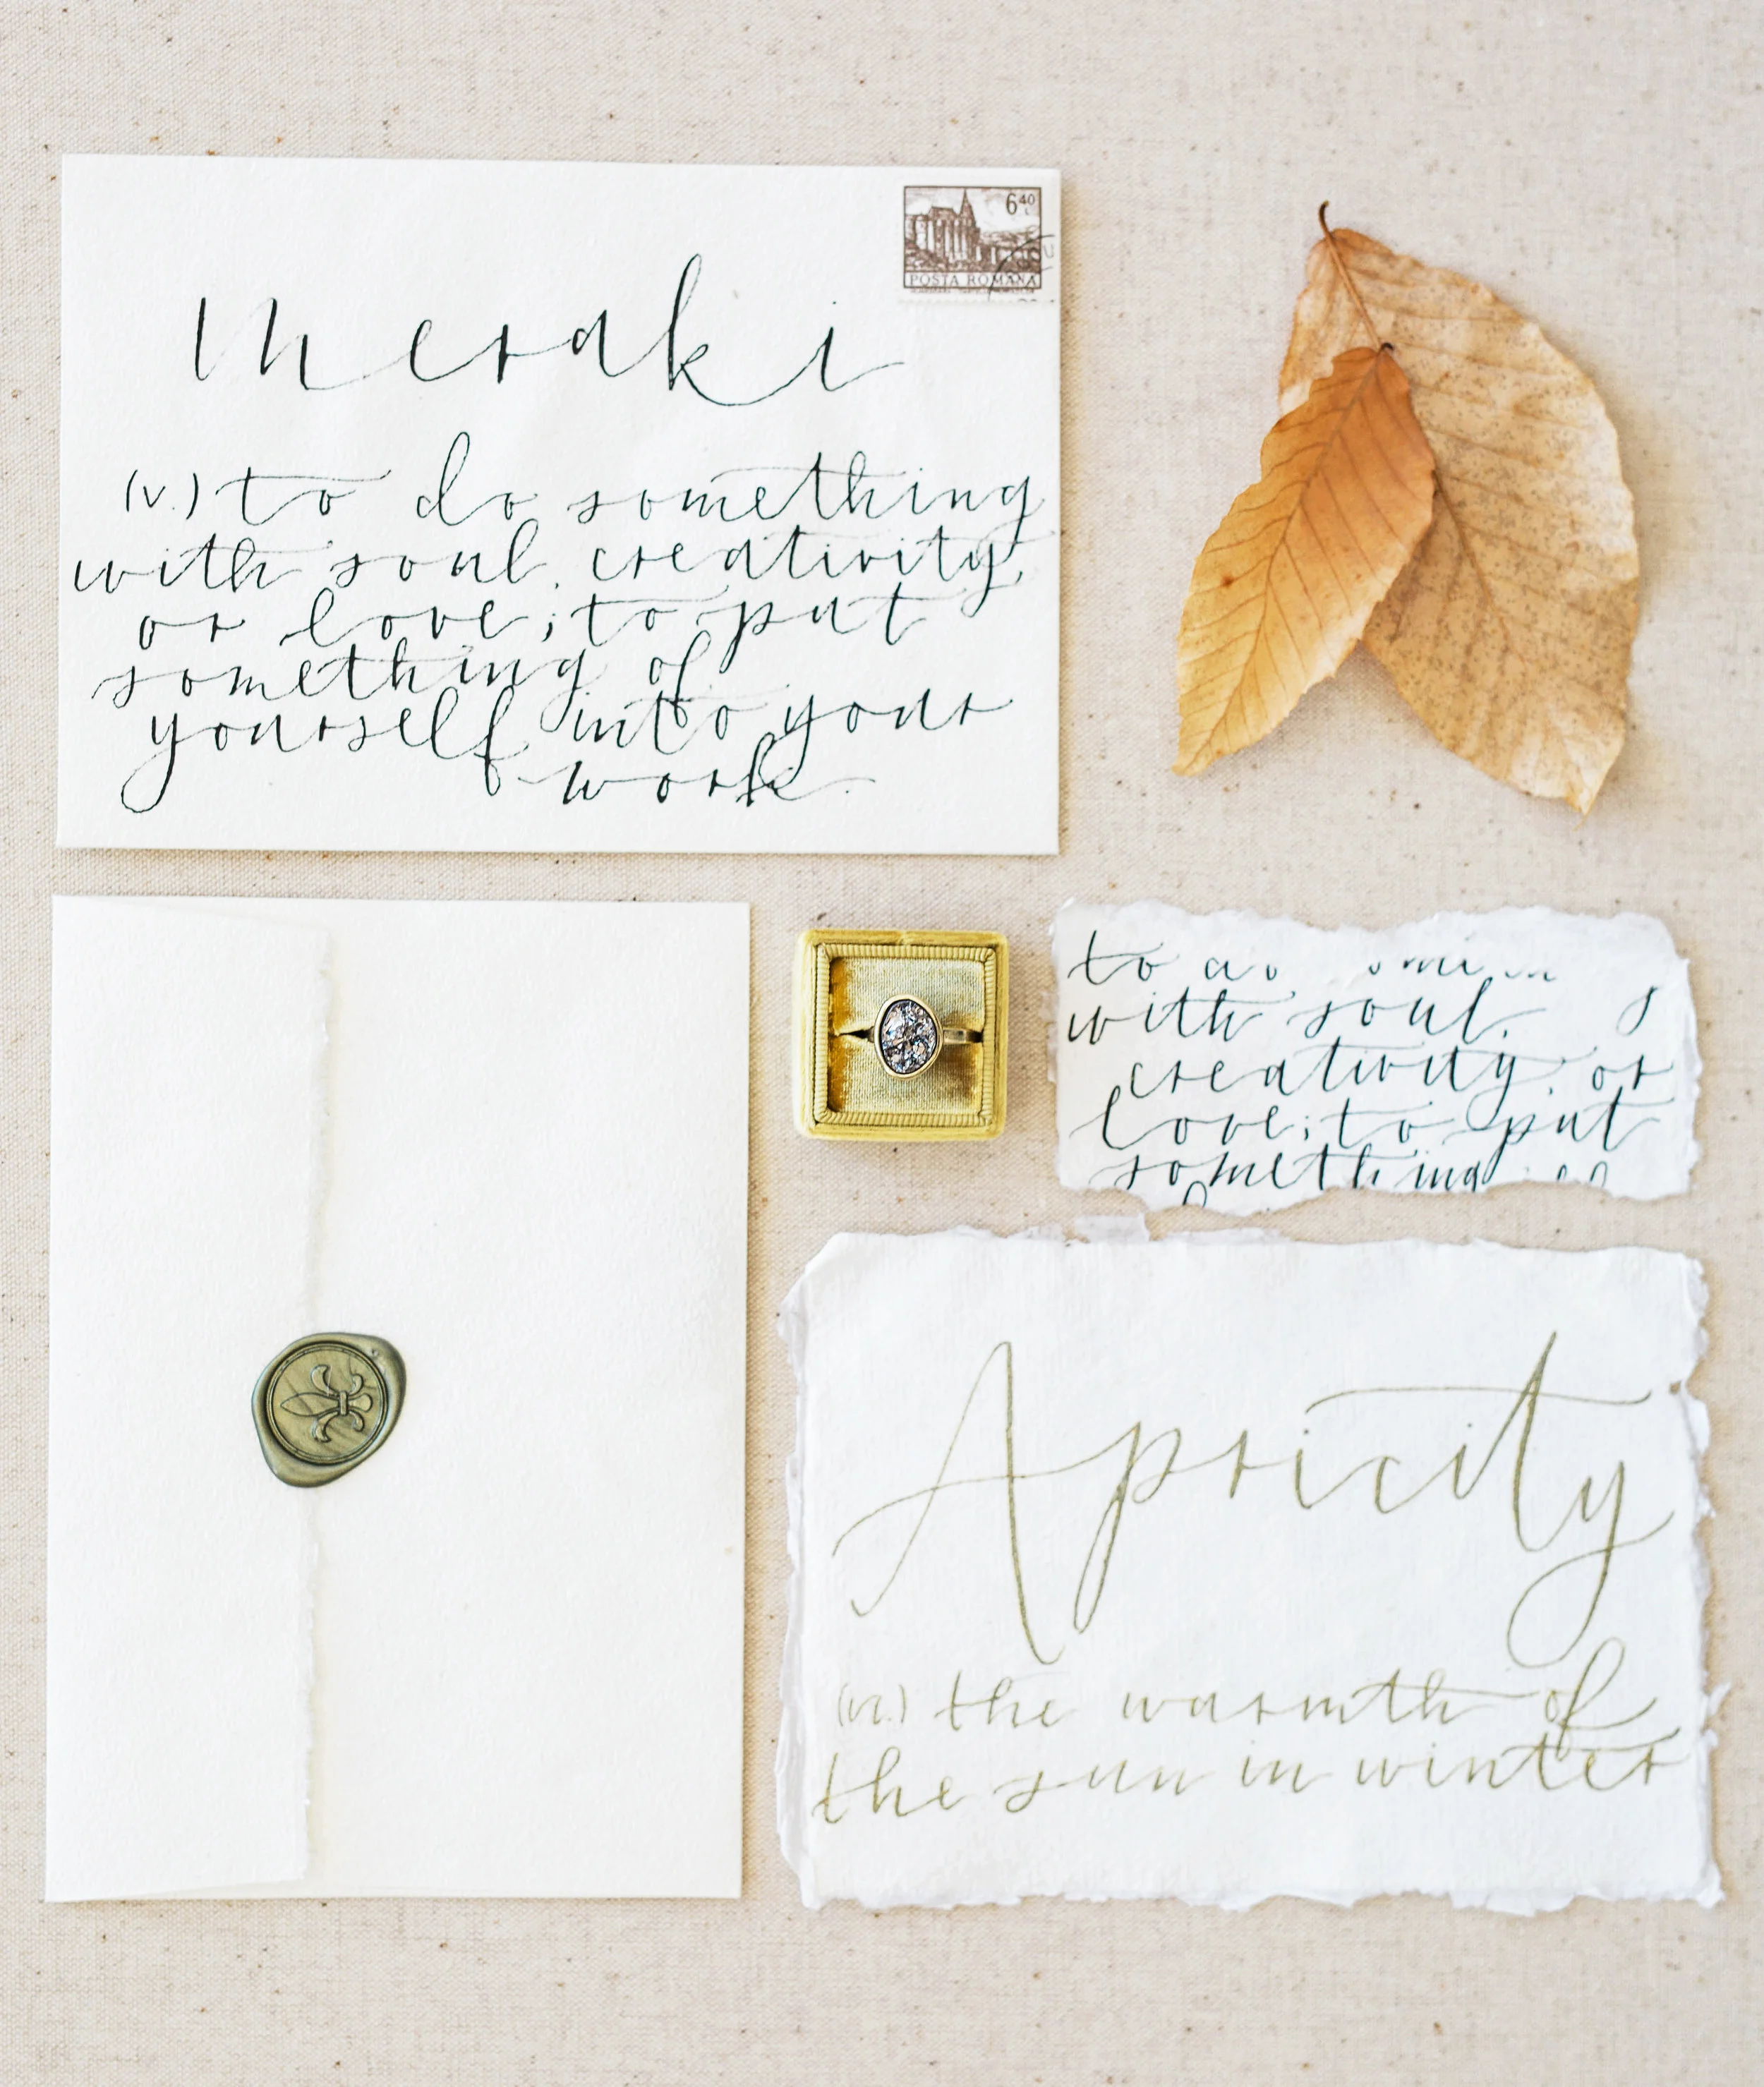 6 40 L
POSTA ROMANA
Meraki
(v.) to do something
with soul, creativity,
or love; to put
something of
yourself into your
work.
to do
with soul,
creativity, or
love; to put
something of
Apricity
(n.) the warmth of
the sun in winter